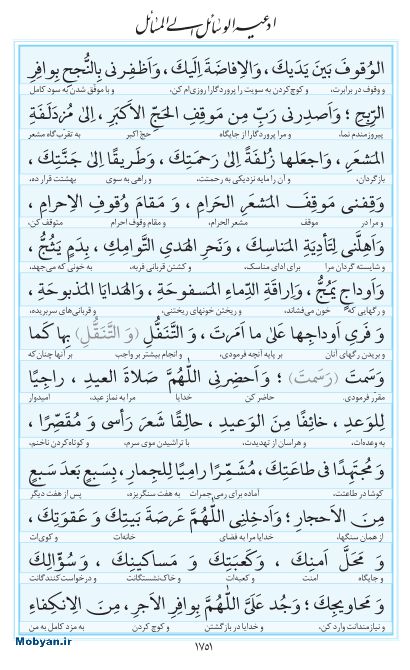 ادعیة الوسائل الی المسائل
الوُقوفَ بَینَ یَدَیكَ ، وَالاِفاضَةَ اِلَیكَ ، وَاَظفِرنی بِالنُّجحِ بِوافِرِ
و وقوف در برابرت، و کوچ‌کردن به سویت را پروردگارا روزی‌ام کن، و با موفق شدن به سود کامل
الرِّبحِ ؛ وَاَصدِرنی رَبِّ مِن مَوقِفِ الحَجِّ الاَكبَرِ ، اِلیٰ مُزدَلَفَةِ
پیروزمندم نما، و مرا پروردگارا از جایگاه حج اکبر به تقرّب‌گاه مشعر
المَشعَرِ ، وَاجعَلها زُلفَةً اِلیٰ رَحمَتِكَ ، وَطَریقًا اِلیٰ جَنَّتِكَ ،
بازگردان، و آن را مایه نزدیکی به رحمتت، و راهی به سوی بهشتت قرار ده،
وَقِفنی مَوقِفَ المَشعَرِ الحَرامِ ، وَ مَقامَ وُقوفِ الاِحرامِ ،
و مرا در موقف مشعر الحرام، و مقام وقوف احرام متوقف کن،
وَاَهِّلنی لِتَأدِیَةِ المَناسِكَ ، وَنَحرِ الهَدیِ التَّوامِكِ ، بِدَمٍ یَثُجُّ ،
و شایسته گردان مرا برای ادای مناسک، و کشتن قربانی فربه، به خونی که می‌جهد،
وَاَوداجٍ یَمُجُّ ، وَاِراقَةِ الدِّماءِ المَسفوحَةِ ، وَالهَدایَا المَذبوحَةِ ،
و رگهایی که خون می‌فشاند، و ریختن خونهای ریختنی، و قربانی‌های سربریده،
وَ فَریِ اَوداجِها عَلیٰ ما اَمَرتَ ، وَ التَّنَفُّلِ (وَ التَّنَقُّلِ) بِها كَما
و بریدن رگهای آنان بر پایه آنچه فرمودی، و انجام بیشتر بر واجب بر آنها چنان‌که
وَسَمتَ (رَسَمتَ) ؛ وَ اَحضِرنِی اللّٰهُمَّ صَلاةَ العیدِ ، راجِیًا
مقرر فرمودی. حاضر کن خدایا مرا به نماز عید، امیدوار
لِلوَعدِ ، خائِفًا مِنَ الوَعیدِ ، حالِقًا شَعرَ رَأسی وَ مُقَصِّرًا ،
به وعده‌ات، و هراسان از تهدیدت، با تراشیدن موی سرم، و کوتاه‌کردن ناخنم،
وَ مُجتَهِدًا فی طاعَتِكَ ، مُشَمِّرًا رامِیًا لِلجِمارِ ، بِسَبعٍ بَعدَ سَبعٍ
کوشا در طاعتت، آماده برای رمی جمرات به هفت سنگریزه، پس از هفت دیگر
مِنَ الاَحجارِ ؛ وَاَدخِلنِی اللّٰهُمَّ عَرصَةَ بَیتِكَ وَ عَقوَتِكَ ،
از همان سنگها. خدایا مرا به فضای خانه‌ات و کوی‌ات
وَ مَحَلَّ اَمنِكَ ، وَكَعبَتِكَ وَ مَساكینِكَ ، وَ سُؤّالِكَ
و جایگاه امنت و کعبه‌ات و خاک‌نشستگانت و درخواست‌کنندگانت
وَ مَحاویجِكَ ؛ وَجُد عَلَیَّ اللّٰهُمَّ بِوافِرِ الاَجرِ، مِنَ الاِنكِفاءِ
و نیازمندانت وارد کن، و خدایا در بازگشتن و کوچ کردن به مزد کامل به من
Mobyan.ir
۱۷۵۱